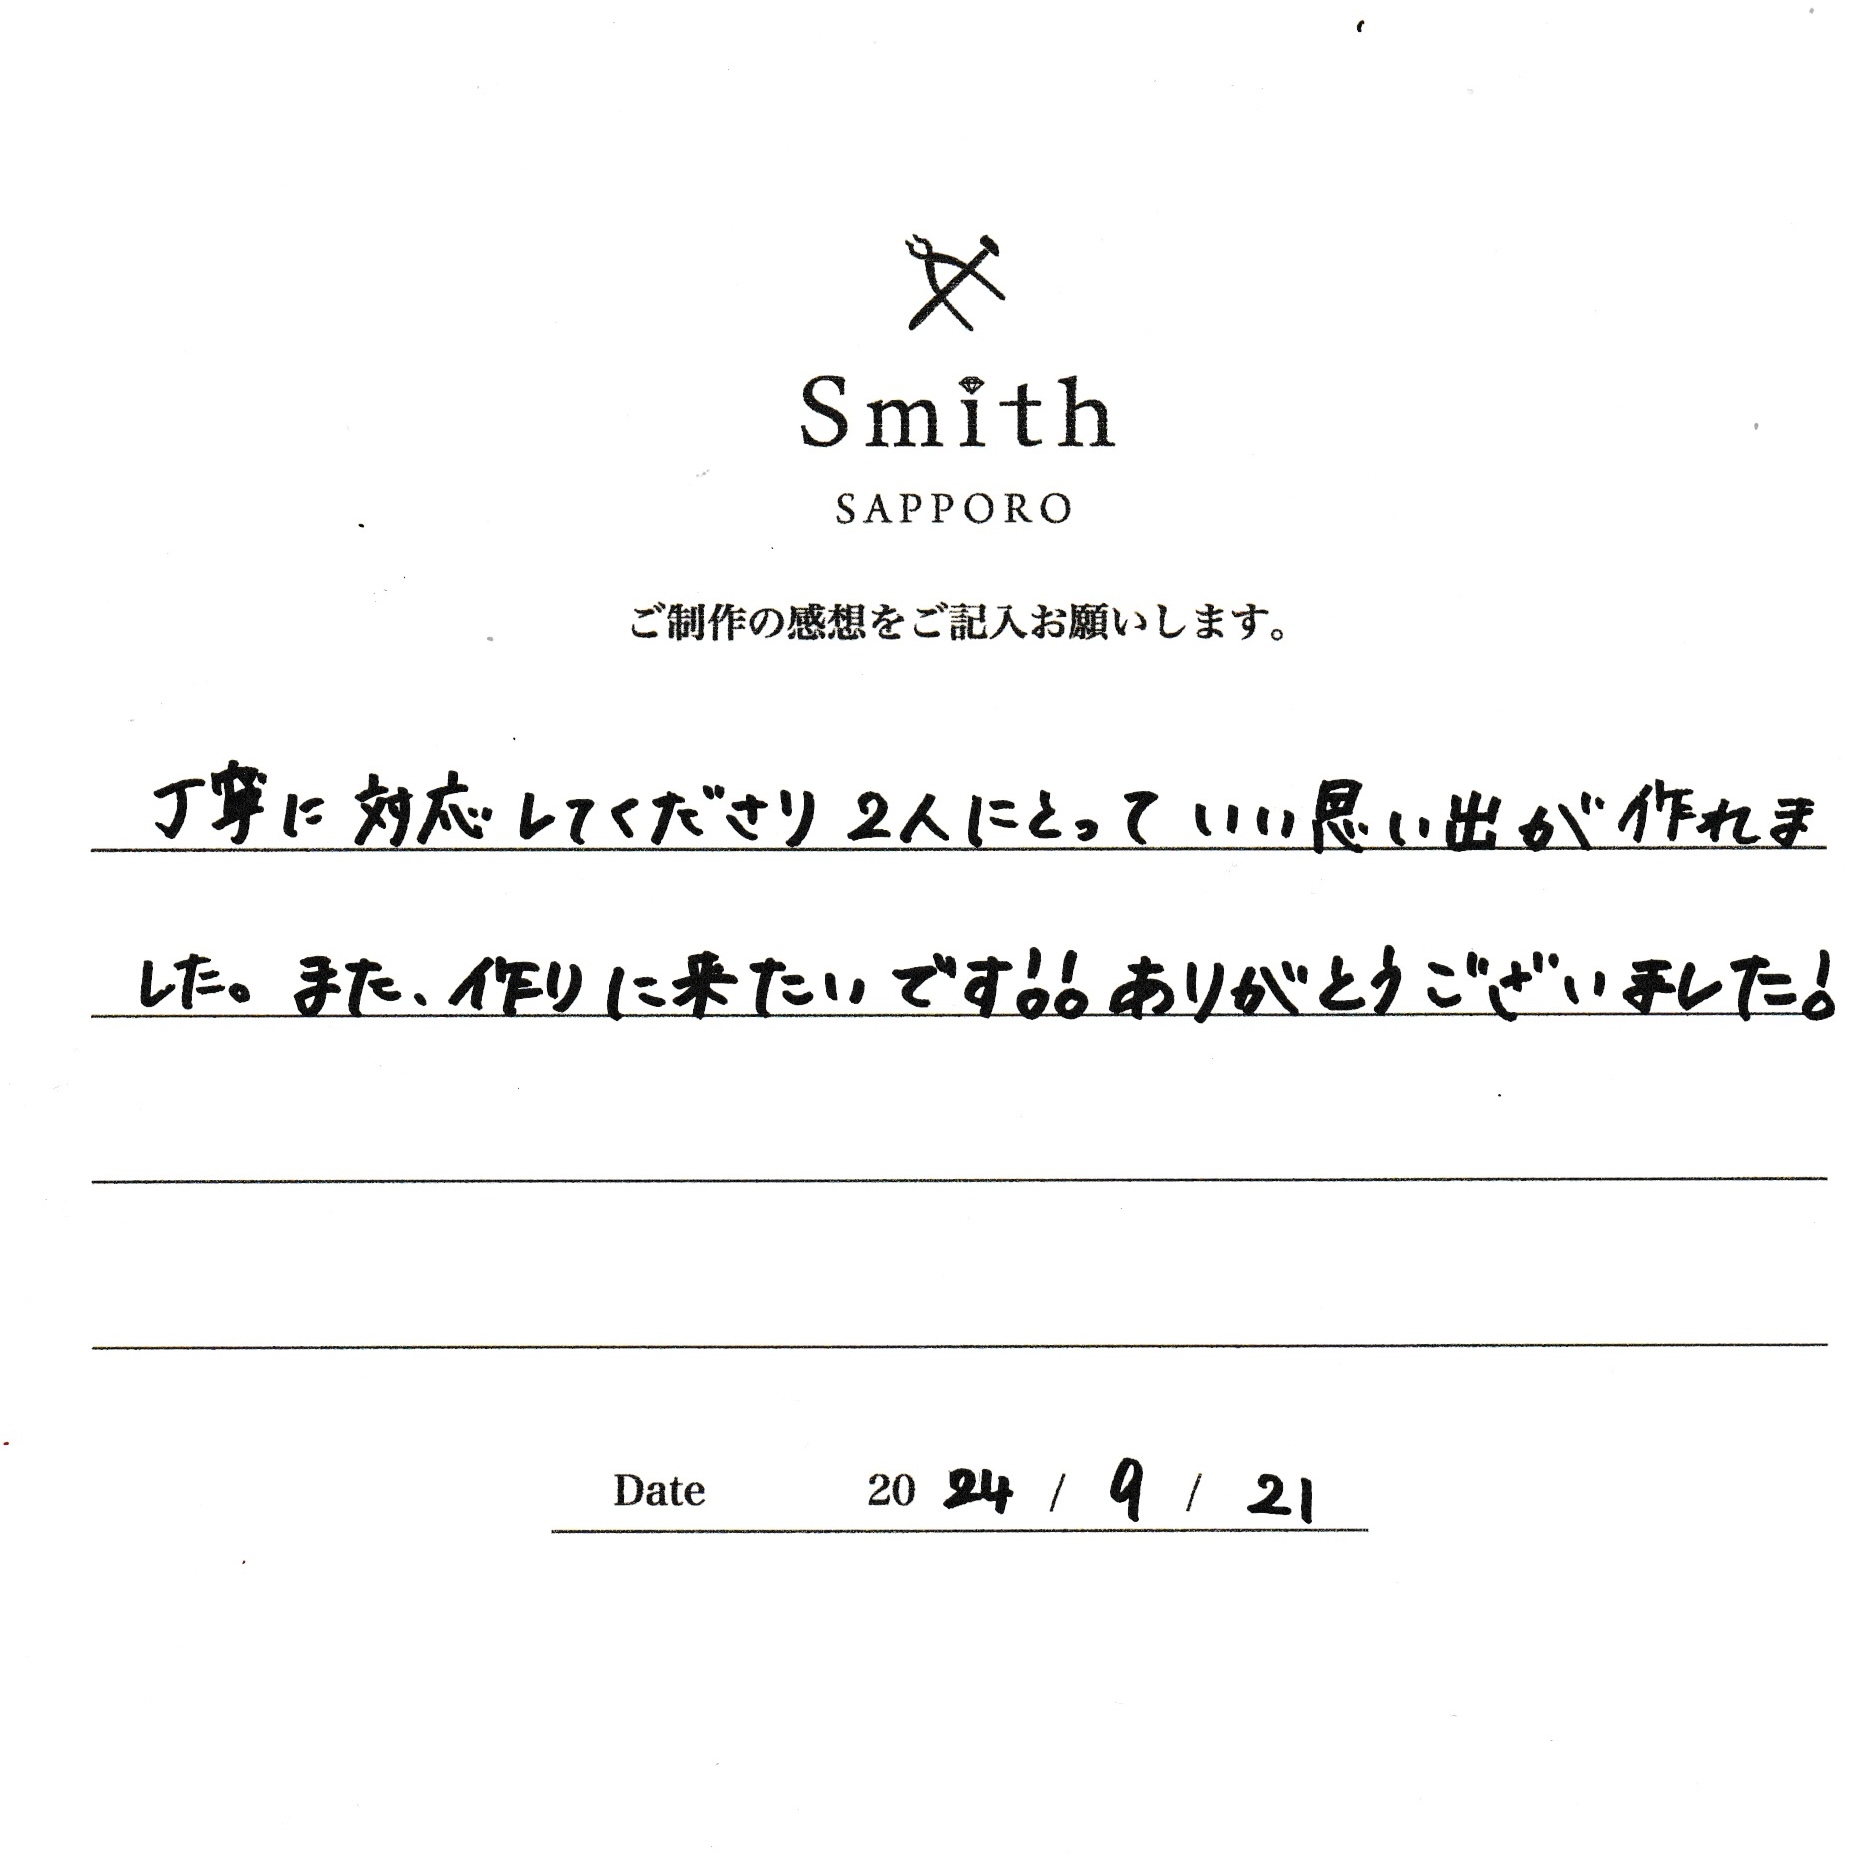 Smith
SAPPORO
ご制作の感想をご記入お願いします。
丁寧に対応してくださり2人にとっていい思い出が作れま
した。また、作りに来たいです!!ありがとうございました!
Date 2024 / 9 / 21